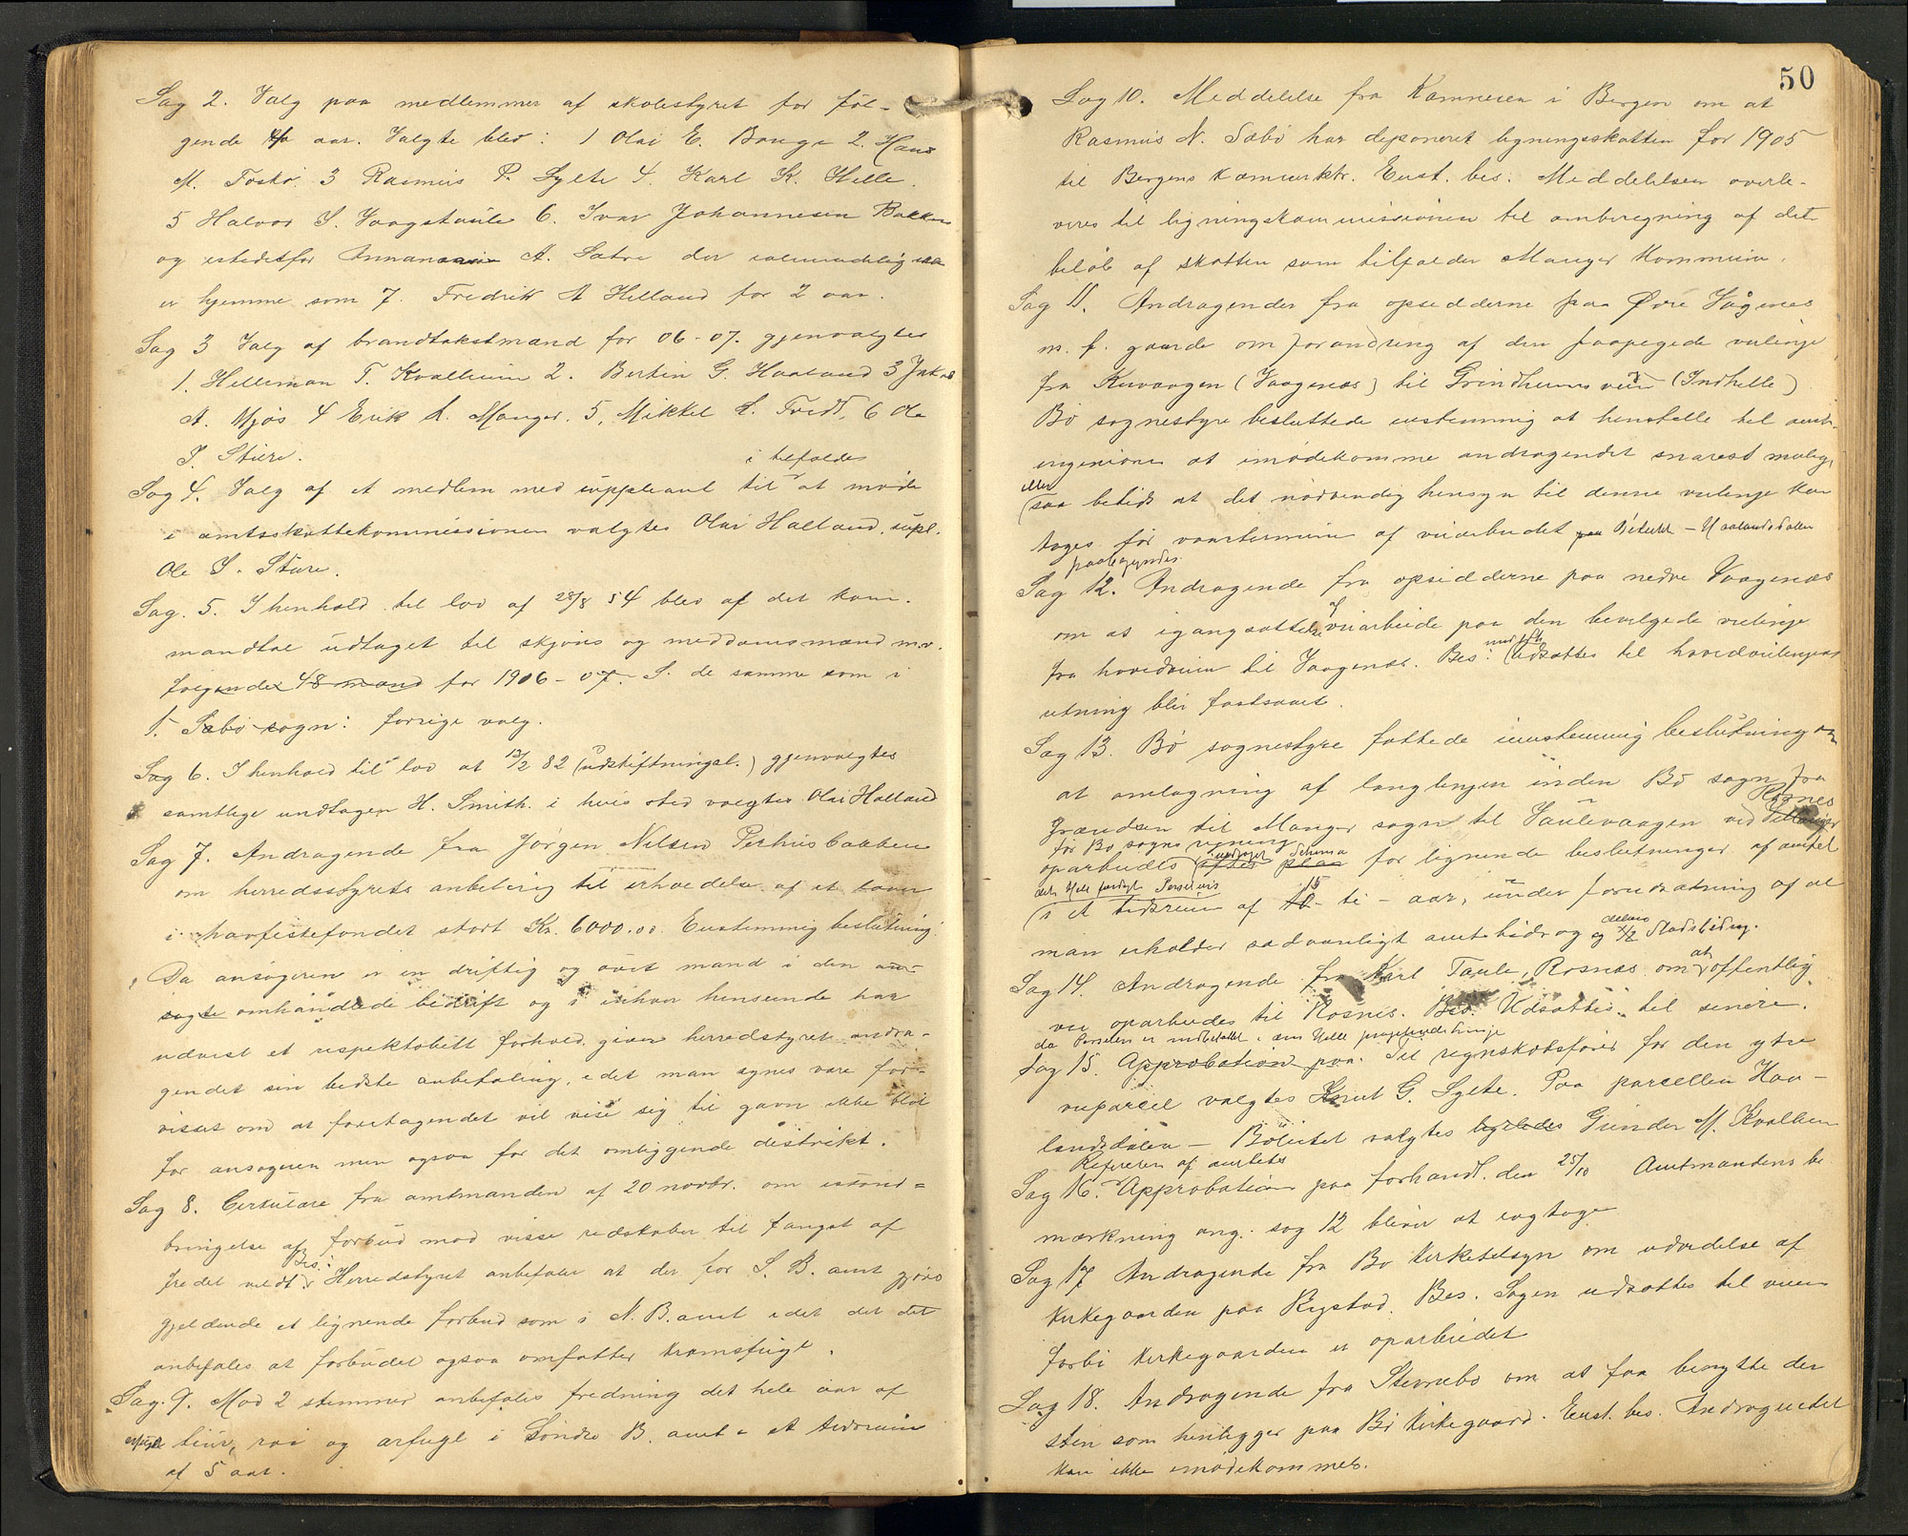 Sag 2. Valg paa medlemmer af skolestyret for föl-
gende aar. Valgte blev: 1 Olai E. Bauge 2. Hans
M. Toskö. 3 Rasmus P. Sylte 4. Karl K. Helle.
5 Halvor S. Vaagstaule 6. Ivar Johannesen Bakken
og istedetfor A. Sætre der
er hjemme som 7. Fredrik A Helland for 2 aar.
Sag 3 Valg af brandtakstmænd for 06-07. gjenvalgtes
1. Helleman T. Kvalheim 2. Berten G. Haaland 3 Jakob
A. Mjös 4 Erik A. Manger. 5, Mikkel L. Tvedt, 6 Ole
S. Stüre.
i tilfælde
Sag 4. Valg af et medlem med suppleant til at möde
i amtsskattekommissionen valgtes Olai Halland, supl.
Ole S. Stüre.
Sag. 5. I henhold til lov af 28/8 54 blev af det kom.
mandtal üdtaget til skjöns og meddomsmænd m.v.
følgende 48 mænd for 1906-07. S. de samme som i
1. Sæbö sogn: forrige valg.
Sag 6. I henhold til lov at 13/2 82 (udskiftningsl.) gjenvalgtes
samtlige undtagen H. Smith. i hvis sted valgtes Olai Halland
Sag 7. Andragende fra Jörgen Nilsen Perhusbakken
om herredsstyrets anbefaling til erholdelse af et laan
i havfiskefondet stort Kr. 6000.00. Enstemmig beslütning:
Da ansögeren er en driftig og övet mand i den
omhandlede bedrift og i enhver henseende har
udvist et respektabelt forhold giver herredstyret andra-
gendet sin bedste anbefaling, idet man synes være for-
visset om at foretagendet vil vise sig til gavn ikke blot
for ansögeren men ogsaa for det omliggende distrikt.
Sag 8. Cirkülære fra amtmanden af 20 novbr. om istand-
bringelse af forbüd mod visse redskaber til fangst af
Bes:
fredet vildt Herredstyret anbefaler at der for S. B. amt gjöres
gjeldende et lignende forbud som i N. B. amt idet det det
anbefales at forbüdet ogsaa omfatter kramsfugl.
Sag. 9. Mod 2 stemmer anbefales fredning det hele aar af
tiur, röi og orfugl i Söndre B. amt i et tidsrum
af 5 aar.
50
Sag 10. Meddelelse fra Kæmneren i Bergen om at
Rasmus N. Sæbö har deponeret ligningsskatten for 1905
til Bergens kæmnerktr. Enst. bes. Meddelelsen overle-
veres til ligningskommissionen til omberegning af det
belöb af skatten som tilfalder Manger kommune.
Sag 11. Andragender fra opsidderne paa Övre Vågenes
m. fl. gaarde om forandring af den paapegede veilinje
fra Kuvaagen (Vaagenæs) til Grindheims vei (Indhelle)
Bö sognestyre besluttede enstemmig at henstille til amts-
ingeniören at imödekomme andragendet snarest mulig,
eller
saa betids at det nödvendig hensyn til denne veilinje kan
tages för vaarterminen af veiarbeidet paa Bötunet - Haalandsdalen
paabegyndes
Sag 12. Andragende fra opsidderne paa nedre Vaagenæs
om at igangsættelse af veiarbeide paa den bevilgede veilinje
fra hovedveien til Vaagenæs. Bes: Udsættes til hovedveilinjens
retning blir fastsaat.
Sag 13. Bö sognestyre fattede enstemmig beslütning om
at omlægning af langlinjen inden Bö sogn fra
Rosnes
Grændsen til Manger sogn til Taulevaagen ved
för Bö sogns regning
Schema
oparbeides efter plan for lignende beslutninger af amtet
i et tidsrum af 15 - ti - aar, ünder forudsætning af at
man erholder sædvanligt amtsbidrag og Statsbidrag.
Sag 14. Andragende fra Karl Taule, Rosnæs om at offentlig
vei oparbeides til Rosnes. Bes. Udsættes til senere,
da Parselen er indbefattet i den Hele linje
Sag 15. Approbation paa. Til regnskabsförer for den ytre
veiparcel valgtes Knut G. Sylte. Paa parcellen Haa-
landsdalen - Bötünet valgtes Gunder M. Kvalheim
Referere af amtets
Sag 16. Approbation paa forhandl. den 25/10 Amtmandens be-
mærkning ang. sag 12 bliver at iagttage
Sag 17 Andragende fra Bö kirketilsyn om udvidelse af
kirkegaarden paa Rystad. Bes. Sagen udsættes til veien
forbi kirkegaarden er oparbeidet
Sag 18. Andragende fra Stemebö om at faa benytte den
sten som henligger paa Bö kirkegaard. Enst. bes. Andragendet
kan ikke imödekommes.